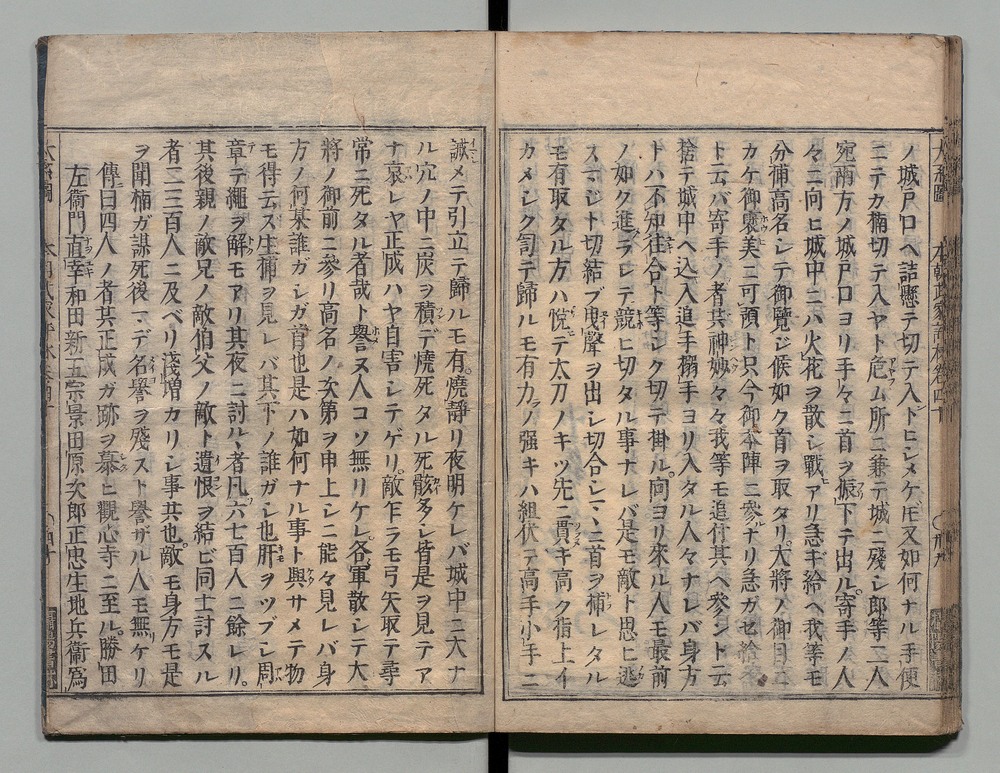 ノ城戸口ヘ詰懸テ切テ入トヒシメケ𪜈又如何ナル手便
ニテカ楠切テ入ヤト危ム所ニ兼テ城ニ殘シ郎等二人
宛兩方ノ城戸口ヨリ手々ニ首ヲ振下テ出ル。寄手ノ人
々ニ向ヒ城中ニハ火花ヲ散シ戰アリ急ギ給ヘ我等モ
分捕高名シテ御覽ジ候如ク首ヲ取タリ。大將ノ御目ニ
カケ御褒美ニ可預ト只今御本陣ニ參ルナリ急ガセ給
トニ云バ寄手ノ者其神妙々々我等モ追付其ヘ參ントニ云
捨テ城中ヘ込入追手搦手ヨリ入タル人々ナレバ身方
トハ不知往合ト等シク切テ掛ル。向ヨリ來ル人モ最前
ノ如ク進ラレテ競ヒ切タル事ナレバ是モ敵ト思ヒ逃
スマジト切結ブ曳聲ヲ出シ切合シヽニ首ヲ捕レタル
モ有取タル方ハ悅テ太刀ノキツ先ニ貫キ高ク指上イ
カメシク訇テ歸ルモ有力ラノ强キハ組伏テ高手小手ニ
誡メテ引立テ歸ルモ有。燒靜リ夜明ケレバ城中ニ大ナ
ル穴ノ中ニ炭ヲ積デ燒死タル死骸多シ皆是ヲ見テア
ナ哀レヤ正成ハヤ自害シテゲリ。敵乍ラモ弓矢取テ尋
常ニ死タル者哉ト譽ヌ人コソ無リケレ。各軍散シテ大
將ノ御前ニ參リ高名ノ次第ヲ申上シニ能々見レバ身
方ノ何某誰ガシガ首也是ハ如何ナル事ト興サメテ物
モ得云ズ生捕ヲ見レバ其下ノ誰ガシ也肝ヲツブシ周
章テ繩ヲ解モアリ其夜ニ討ルヽ者凡六七百人ニ餘レリ。
其後親ノ敵兄ノ敵伯父ノ敵ト遺恨ヲ結ビ同士討スル
者二三百人ニ及ベリ淺增カリシ事共也。敵モ身方モ是
ヲ聞楠ガ謀死後マデ名譽ヲ殘スト譽ザル人モ無ケリ
傳曰四人ノ者其正成ガ跡ヲ慕ヒ觀心寺ニ至ル。勝田
左衞門直幸和田新五宗景田原次郎正忠生地兵衞爲